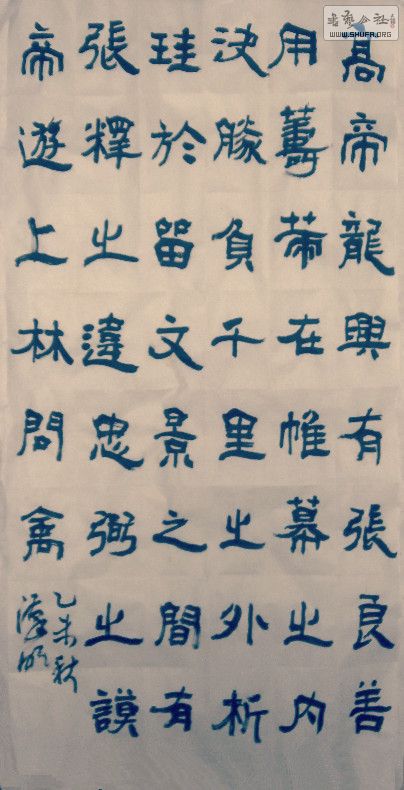 高帝龍興有張良善
用籌策在帷幕之内
決勝負千里之外析
珪於留文景之間有
張釋之違忠弼之謨
帝遊上林問禽
乙未秋
書藝公社
WWW.SHUFA.ORG